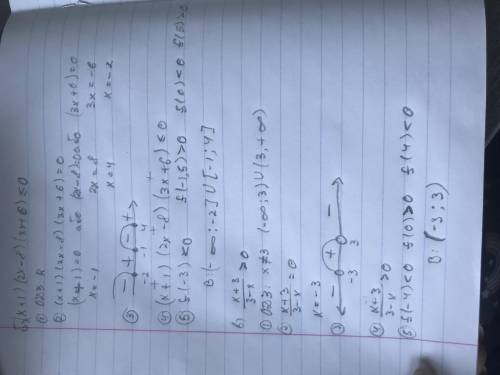 a) (x+1)(2x-8)(3x+6) ≤ 0
① ОДЗ: R
② (x+1)(2x-8)(3x+6)=0
(x+1)=0 або (2x-8)=0 або (3x+6)=0
x=-1 2x=8 3x=-6
x=4 x=-2
③ - + - +
-2 -1 4
④ (x+1)(2x-8)(3x+6) ≤ 0
⑤ f(-3)<0 f(-1,5)>0 f(0)<0 f(5)>0
В: (-∞; -2] U [-1; 4]
б) x+3/3-x > 0
① ОДЗ: x≠3 (-∞; 3) U (3, +∞)
② x+3/3-x = 0
x=-3
③ - + -
-3 3
④ x+3/3-x > 0
⑤ f(-4)<0 f(0)>0 f(4)<0
В: (-3; 3)